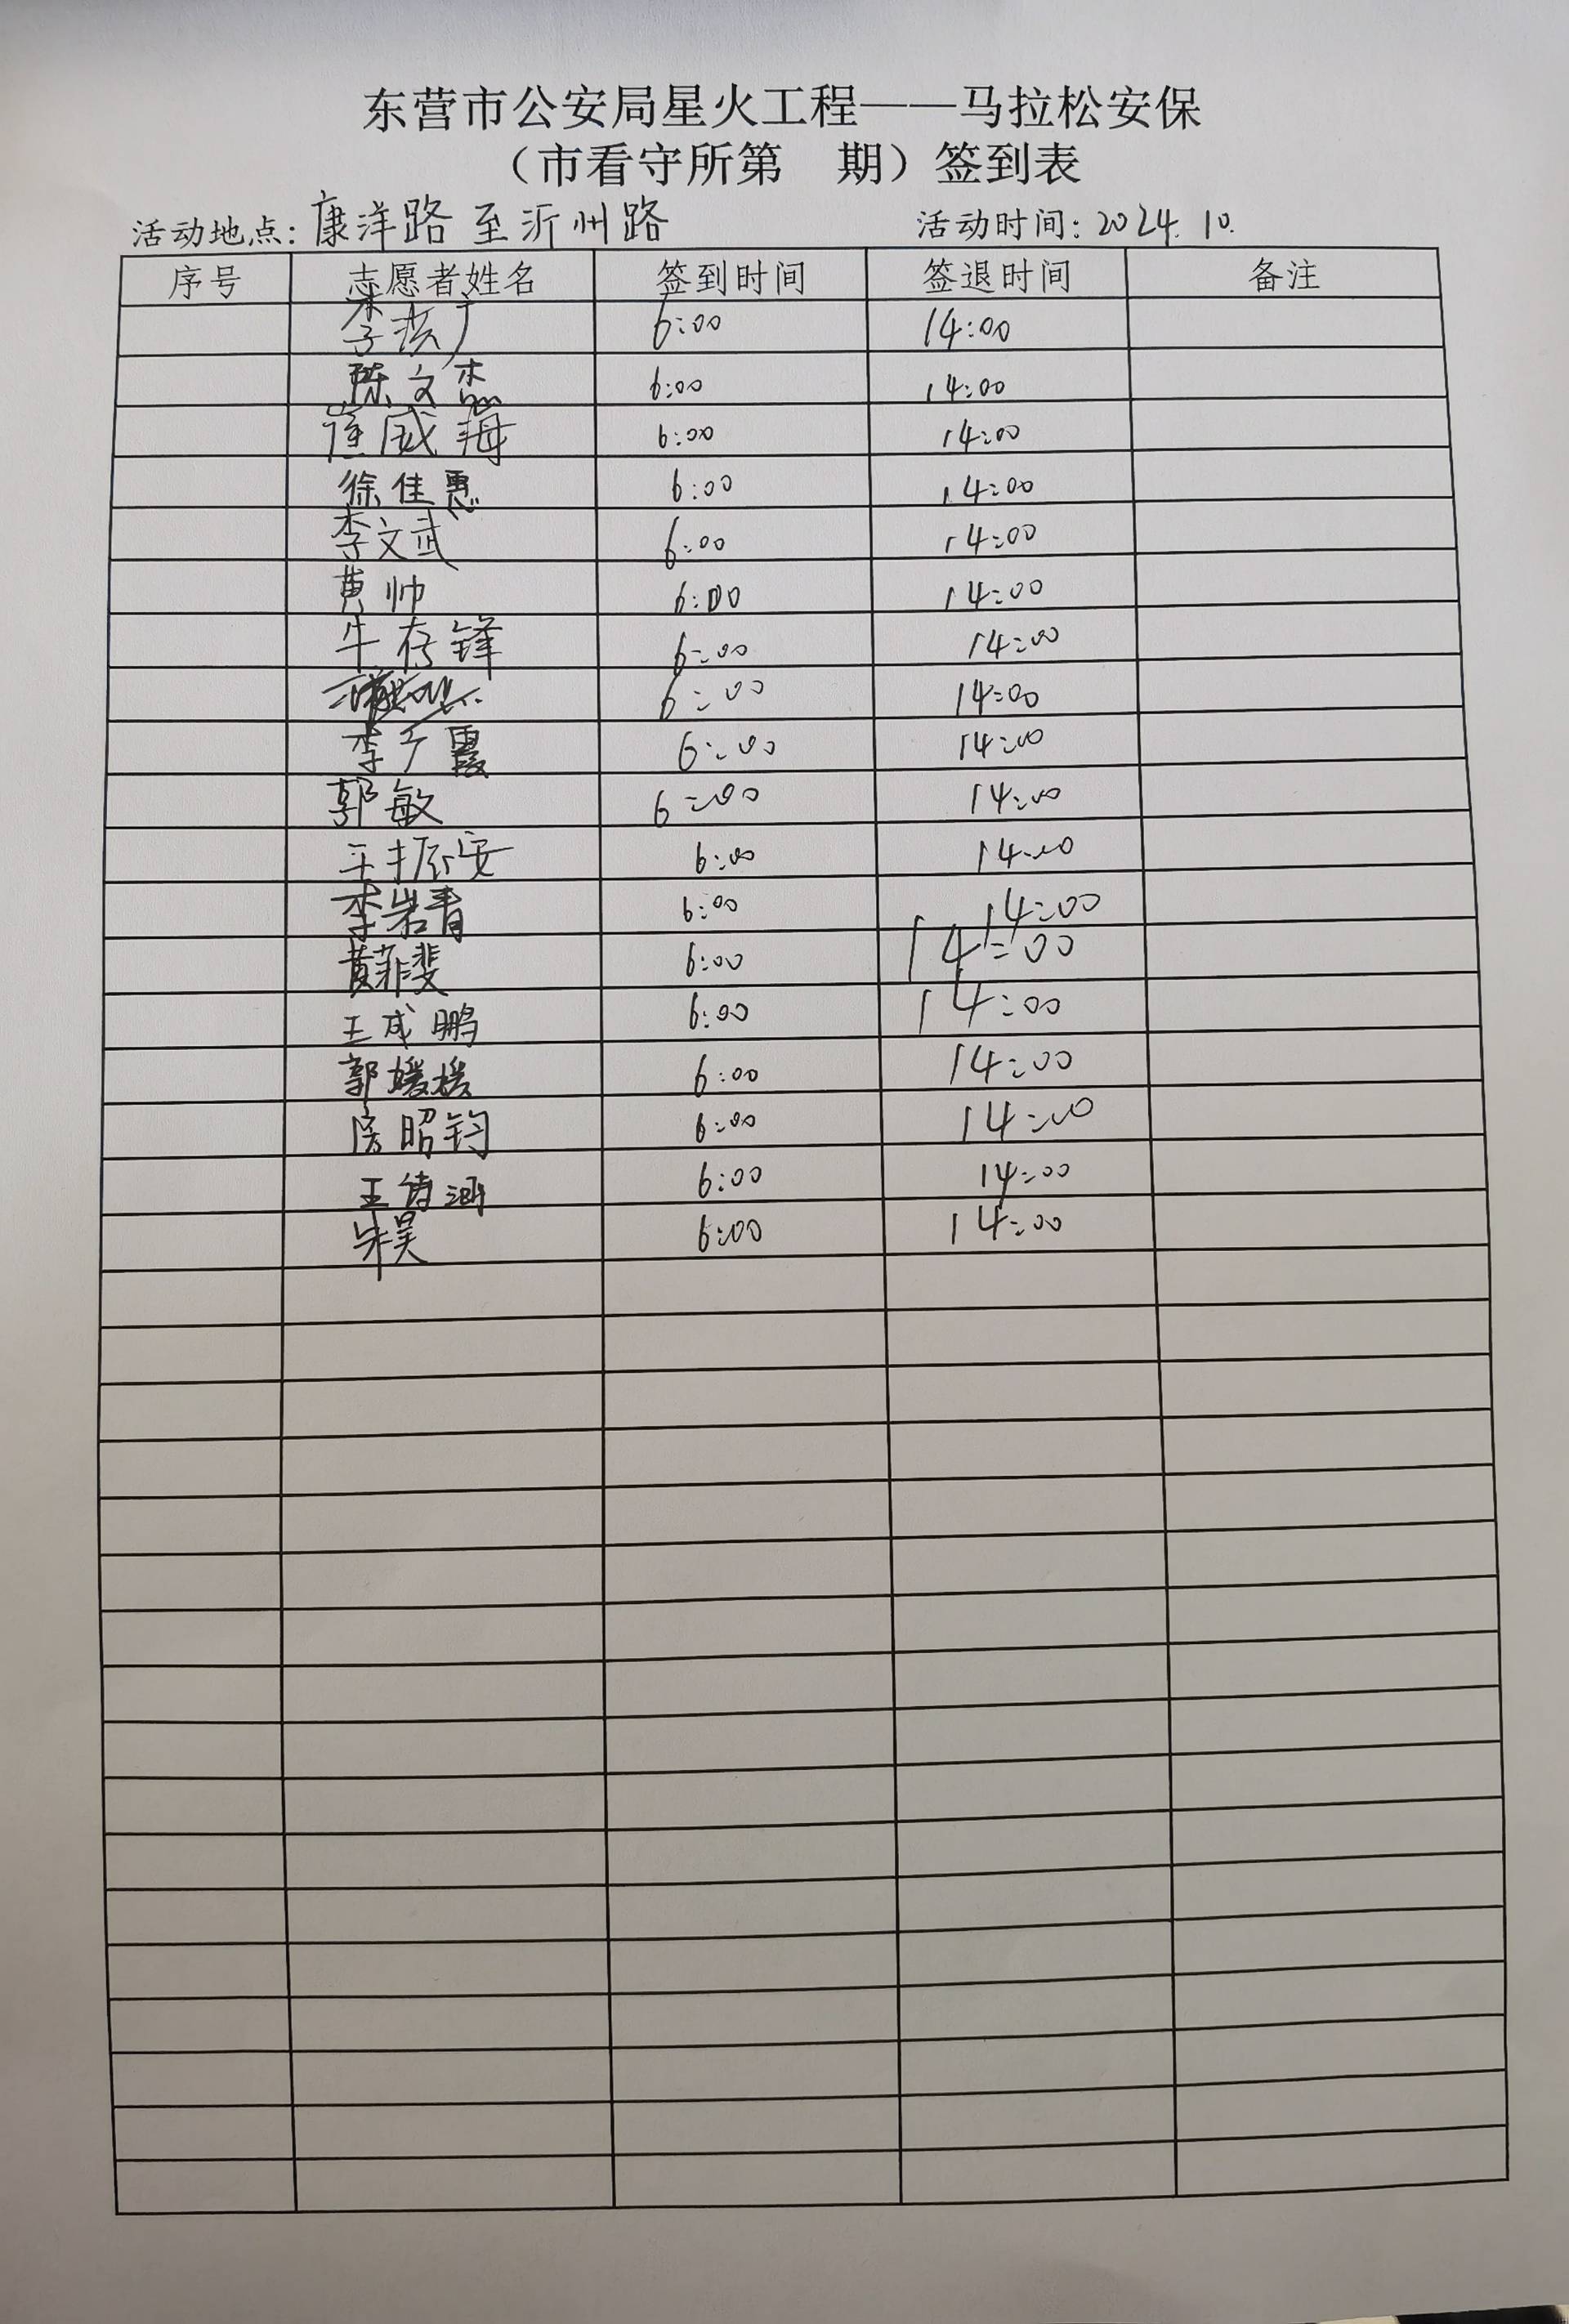 东营市公安局星火工程——马拉松安保
（市看守所第 期）签到表
活动地点：康洋路至沂州路 活动时间：2024.10.
序号 志愿者姓名 签到时间 签退时间 备注
李 广 6:00 14:00
陈文杰 6:00 14:00
崔威海 6:00 14:00
徐佳惠 6:00 14:00
李文武 6:00 14:00
黄帅 6:00 14:00
牛存锋 6:00 14:00
6:00 14:00
李广霞 6:00 14:00
郭敏 6:00 14:00
王振安 6:00 14:00
李岩青 6:00 14:00
黄菲斐 6:00 14:00
王成鹏 6:00 14:00
郭媛媛 6:00 14:00
房昭钧 6:00 14:00
王诗涵 6:00 14:00
朱昊 6:00 14:00